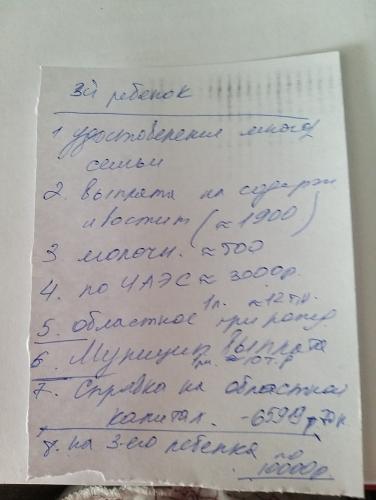 3й ребенок
1 удостоверения многод
семьи
2. выплата на содерж
и воспит (≈1900)
3 молочн. ≈500
4. по ЧАЭС ≈ 3000р.
1л. ≈12т.н.
5. областное при рожд
6. Муницип выплата
≈10т.р
7. Справка на областной
капитал.
8. на 3-его ребенка
по
10000р